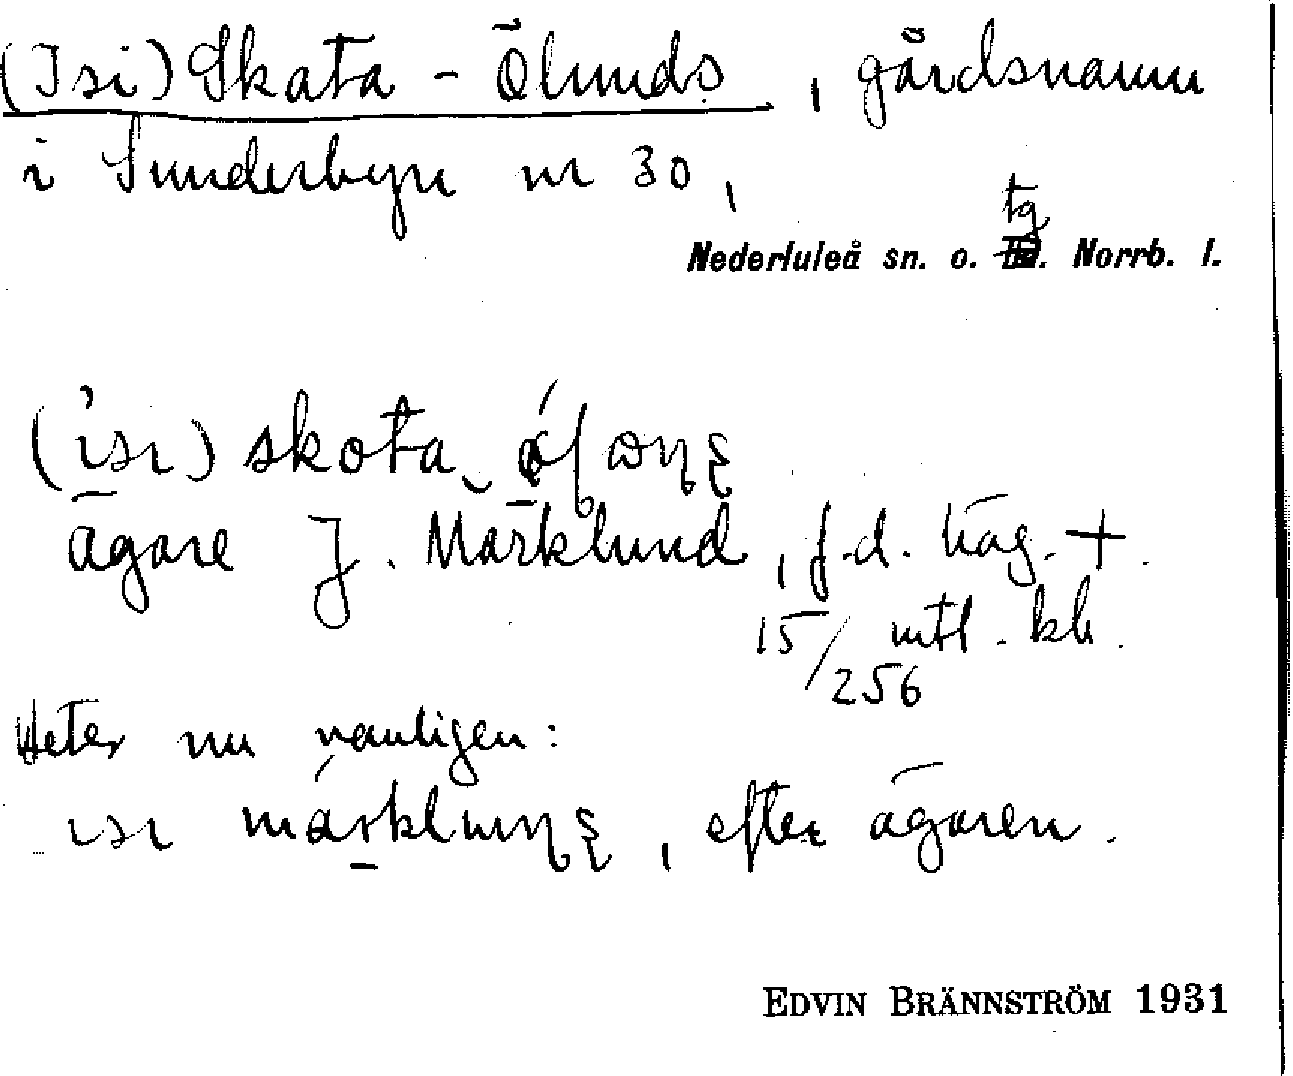 (Isi) Skata - Ölunds, gårdsnamn
i Sunderbyn nr 30,
tg
Nederluleå sn. o. Norrb. l.
(ɩsɩ) skota
ägare J. Märklund, f.d. häg. +.
15/256 mtl. kh.
Heter nu vanligen:
ɩsɩ , efter ägaren.
EDVIN BRÄNNSTRÖM 1931